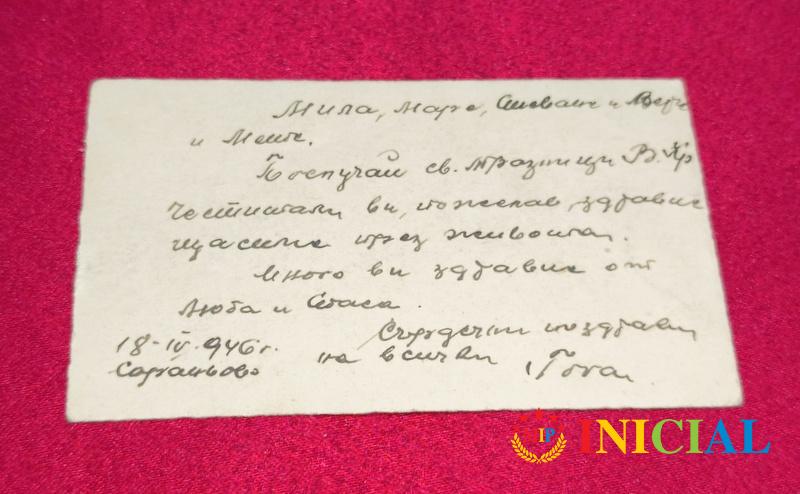 Мила, Маре, Стефане и
и Менч.
По случай св. празници В. Хр
Честитам ви, пожелав здравие
щастие през живота.
Много ви здравие от
Люба и Стаса.
Сърдечни поздрави
на всички Гота.
18-IV-946 г.
Сараньово
IP INICIAL